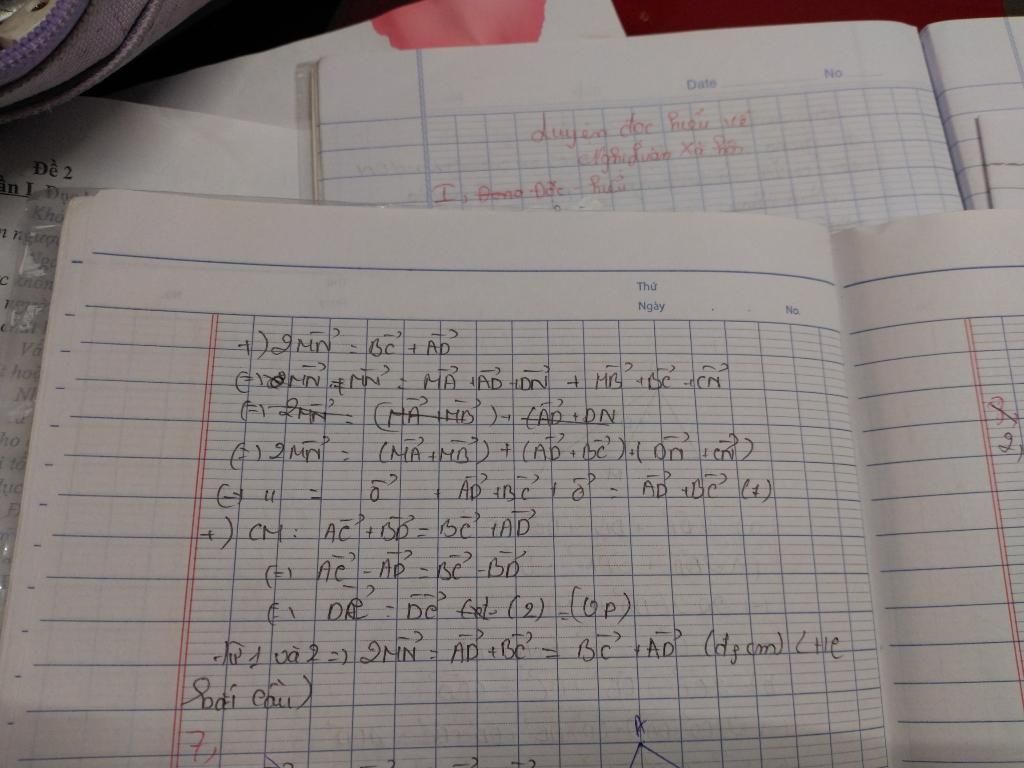 Date No
Luyện đọc hiểu về
Nghị luận xã hội
I, Đọc - hiểu
Đề 2
Thứ
Ngày No.
+) 2MN⃗ = BC⃗ + AD⃗
(=) MN⃗ + MN⃗ = MA⃗ + AD⃗ + DN⃗ + MB⃗ + BC⃗ + CN⃗
(=) 2MN⃗ = (MA⃗ + MB⃗) + (AD⃗ + DN
(=) 2MN⃗ = (MA⃗ + MB⃗) + (AD⃗ + BC⃗) + (DN⃗ + CN⃗)
(=) " = 0⃗ + AD⃗ + BC⃗ + 0⃗ = AD⃗ + BC⃗ (1)
+) CM: AC⃗ + BD⃗ = BC⃗ + AD⃗
(=) AC⃗ - AD⃗ = BC⃗ - BD⃗
(=) DC⃗ = DC⃗ (2)
Từ 1 và 2 => 2MN⃗ = AD⃗ + BC⃗ = BC⃗ + AD⃗ (đpcm)
7,
A
2,